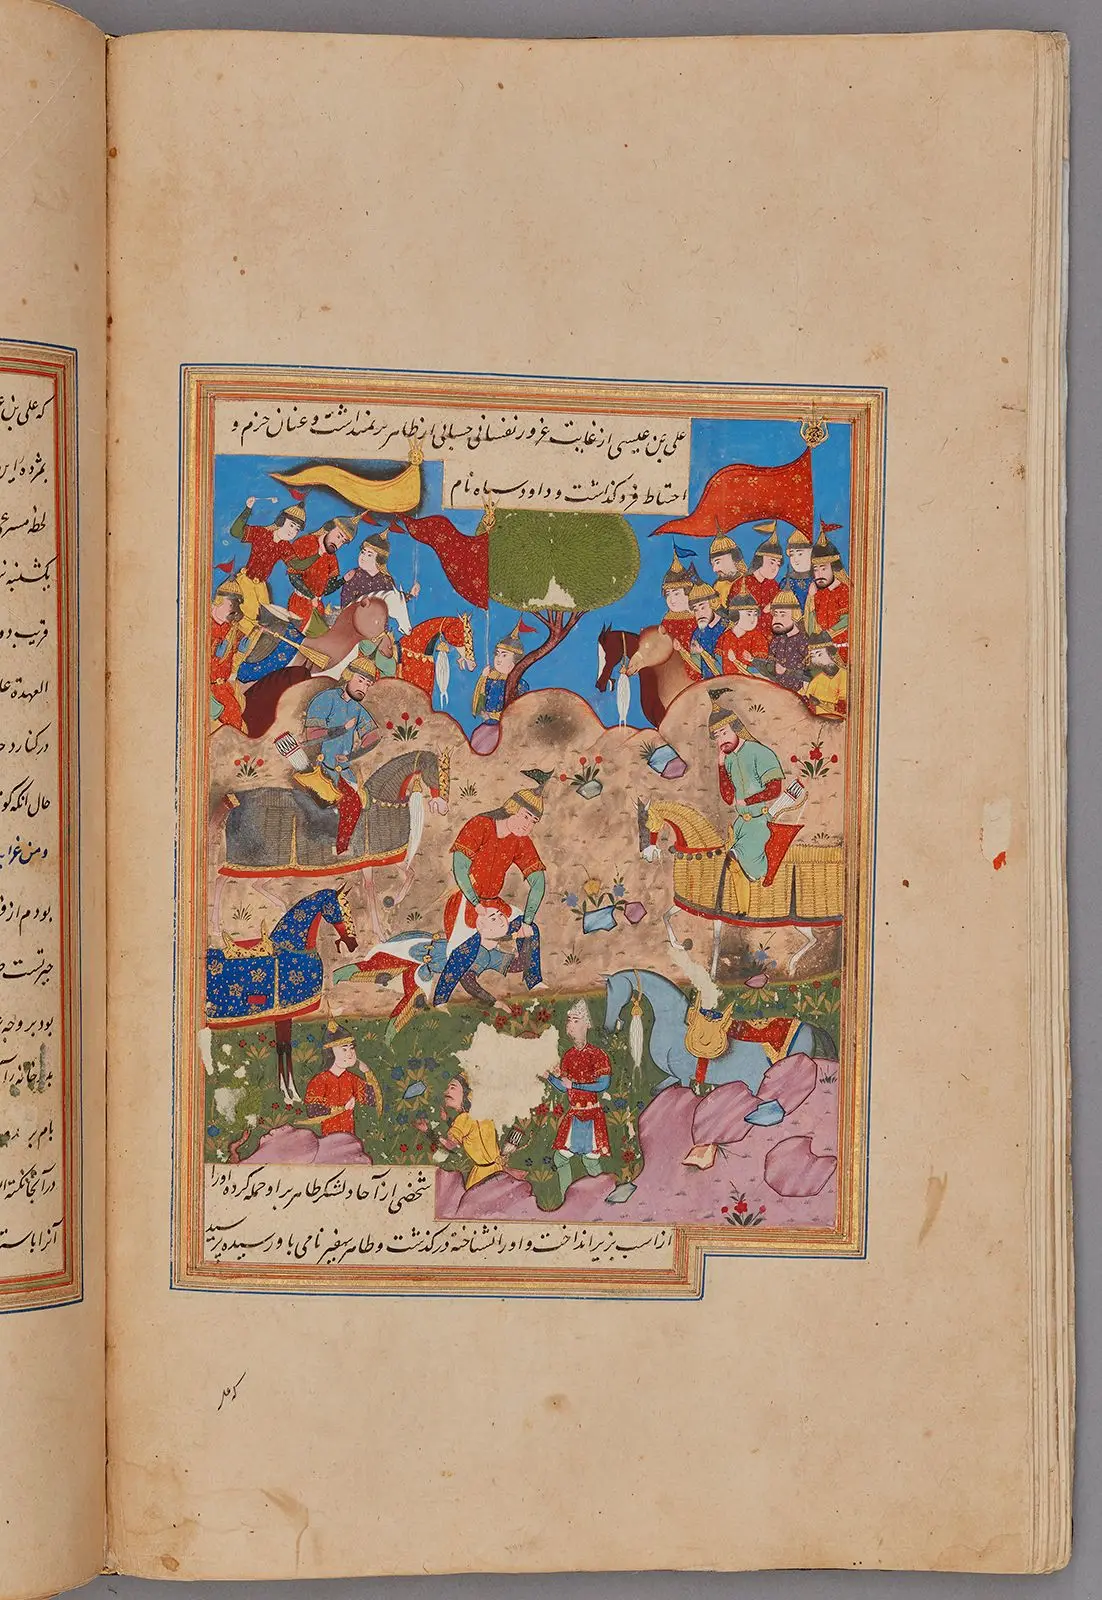 علی بن عیسی از غایت غرور نفسانی حسابی از طاهر بر نمیداشت و عنان حزم و
احتیاط فرو گذاشت و داود سیاه نام
شخصی از آحاد لشکر طاهر بر او حمله کرده اورا
از اسب بزیر انداخت و اورا نشناخته در گذشت و طاهر صغیر نامی باو رسیده پرسید
که علی
که علی بن
بمژده این
لحظه مسرعی
یکشنبه
قریب دو
العهدة علی
در کنار د
حال آنکه
و من غرایب
بودم از
حیرتست
بود بر وجه
خانه را
بام بر
در آنجا
آنرا